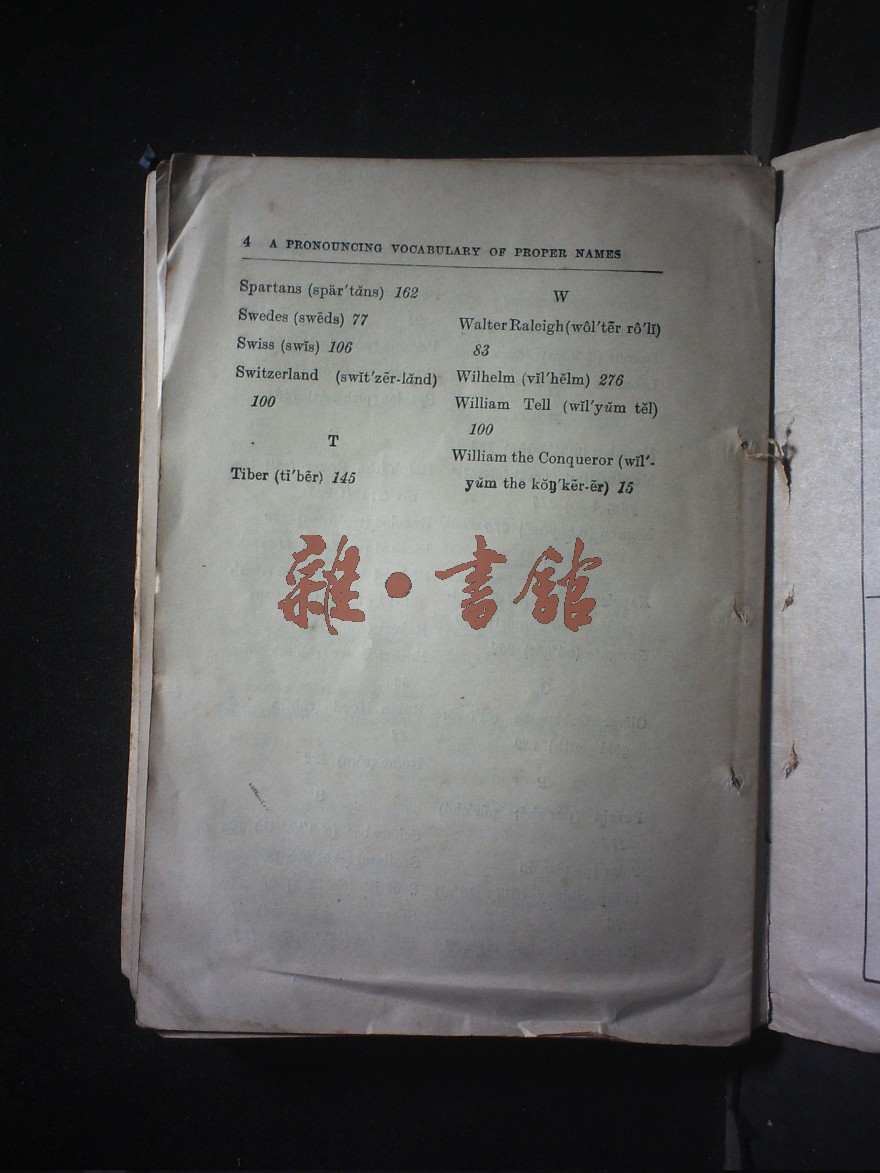 4 A PRONOUNCING VOCABULARY OF PROPER NAMES
Spartans (spär′tăns) 162
Swedes (swēds) 77
Swiss (swĭs) 106
Switzerland (swĭt′zẽr-lănd)
100
T
Tiber (tī′bẽr) 145
W
Walter Raleigh (wôl′tẽr rô′lĭ)
83
Wilhelm (vĭl′hĕlm) 276
William Tell (wĭl′yŭm tĕl)
100
William the Conqueror (wĭl′-
yŭm the kŏŋ′kẽr-ẽr) 15
雜·書館